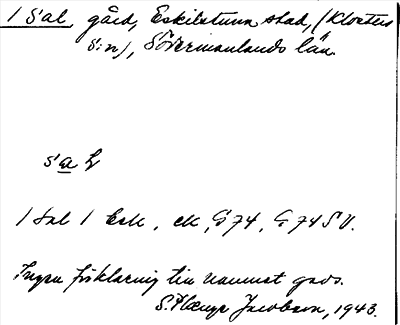 1 Sal, gård, Eskilstuna stad, (Klosters
s:n), Södermanlands län.
sa L
1 Sal 1 Esk, ek, G 74, G 74 SV.
Ingen förklaring till namnet gavs.
S. Hænge Jacobson, 1943.